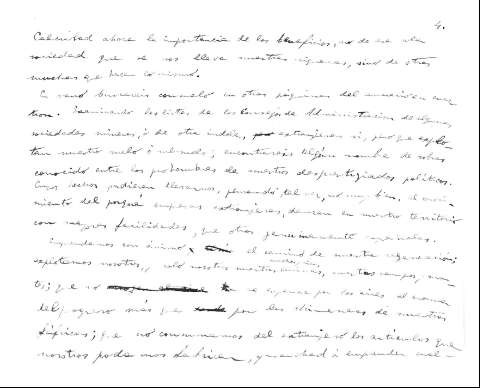 4.
Calculad ahora la importancia de los beneficios, no de esa sola
sociedad que se nos lleva nuestras riquezas, sino de otras
muchas que hacen lo mismo.
En vano buscareis consuelo en otras páginas del anuario en
Examinando las listas de los Consejos de Administracion de algunas
sociedades mineras, ó de otra indole, extranjeras si, pero que explo-
tan nuestro suelo ó subsuelo; encontrareis algún nombre de sobra
conocido entre los prohombres de nuestros desprestigiados políticos.
Cuyos hechos pudieran llevarnos, pensando tal vez, no muy bien, al conoci-
miento del porqué empresas extranjeras, disfrutan en nuestro territorio
con mayores facilidades, que otras genuinamente españolas.
Emprendamos con ánimo, el camino de nuestra regeneracion;
explotemos nosotros, solo nosotros nuestras minas, nuestros campos,
que no se esparza por los aires, el
del progreso más que por las chimeneas de nuestras
fábricas; que no consumamos del extranjero los artículos que
nosotros podamos fabricar, y marchad á emprender